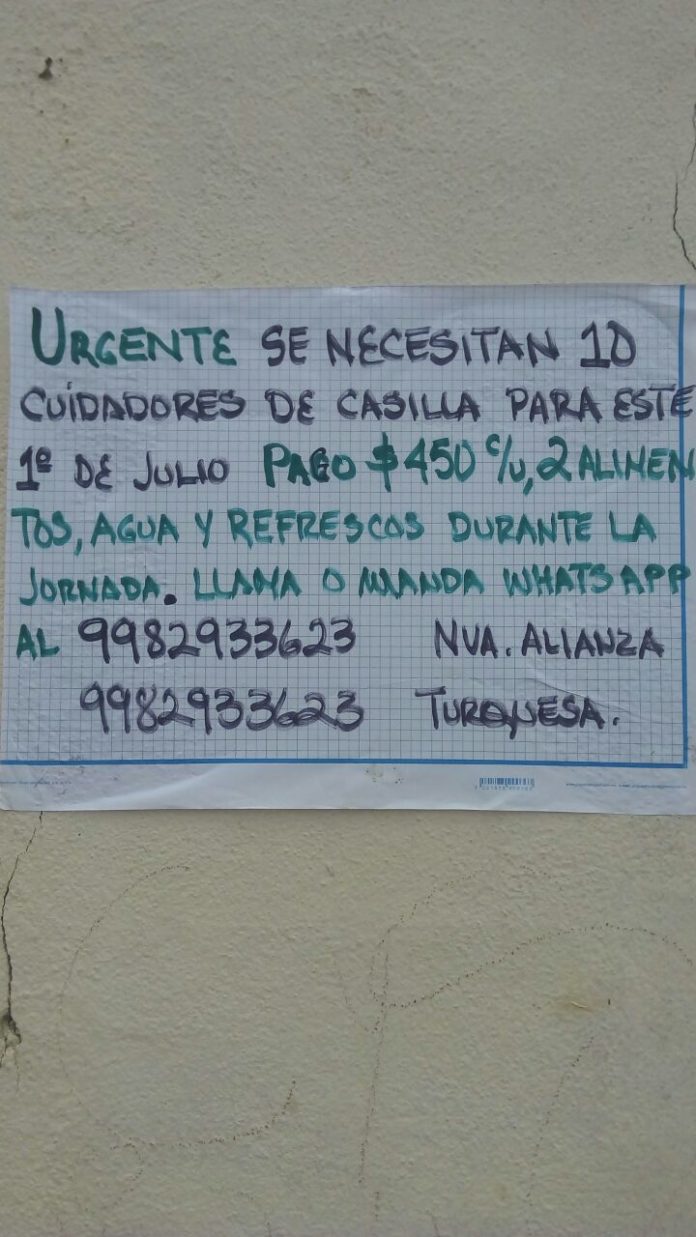 URGENTE SE NECESITAN 10
CUÍDADORES DE CASILLA PARA ESTE
1º DE JULIO PAGO $450 c/u, 2 ALIMEN
TOS, AGUA Y REFRESCOS DURANTE LA
JORNADA. LLAMA O MANDA WHATSAPP
AL 9982933623 NVA. ALIANZA
9982933623 TURQUESA.